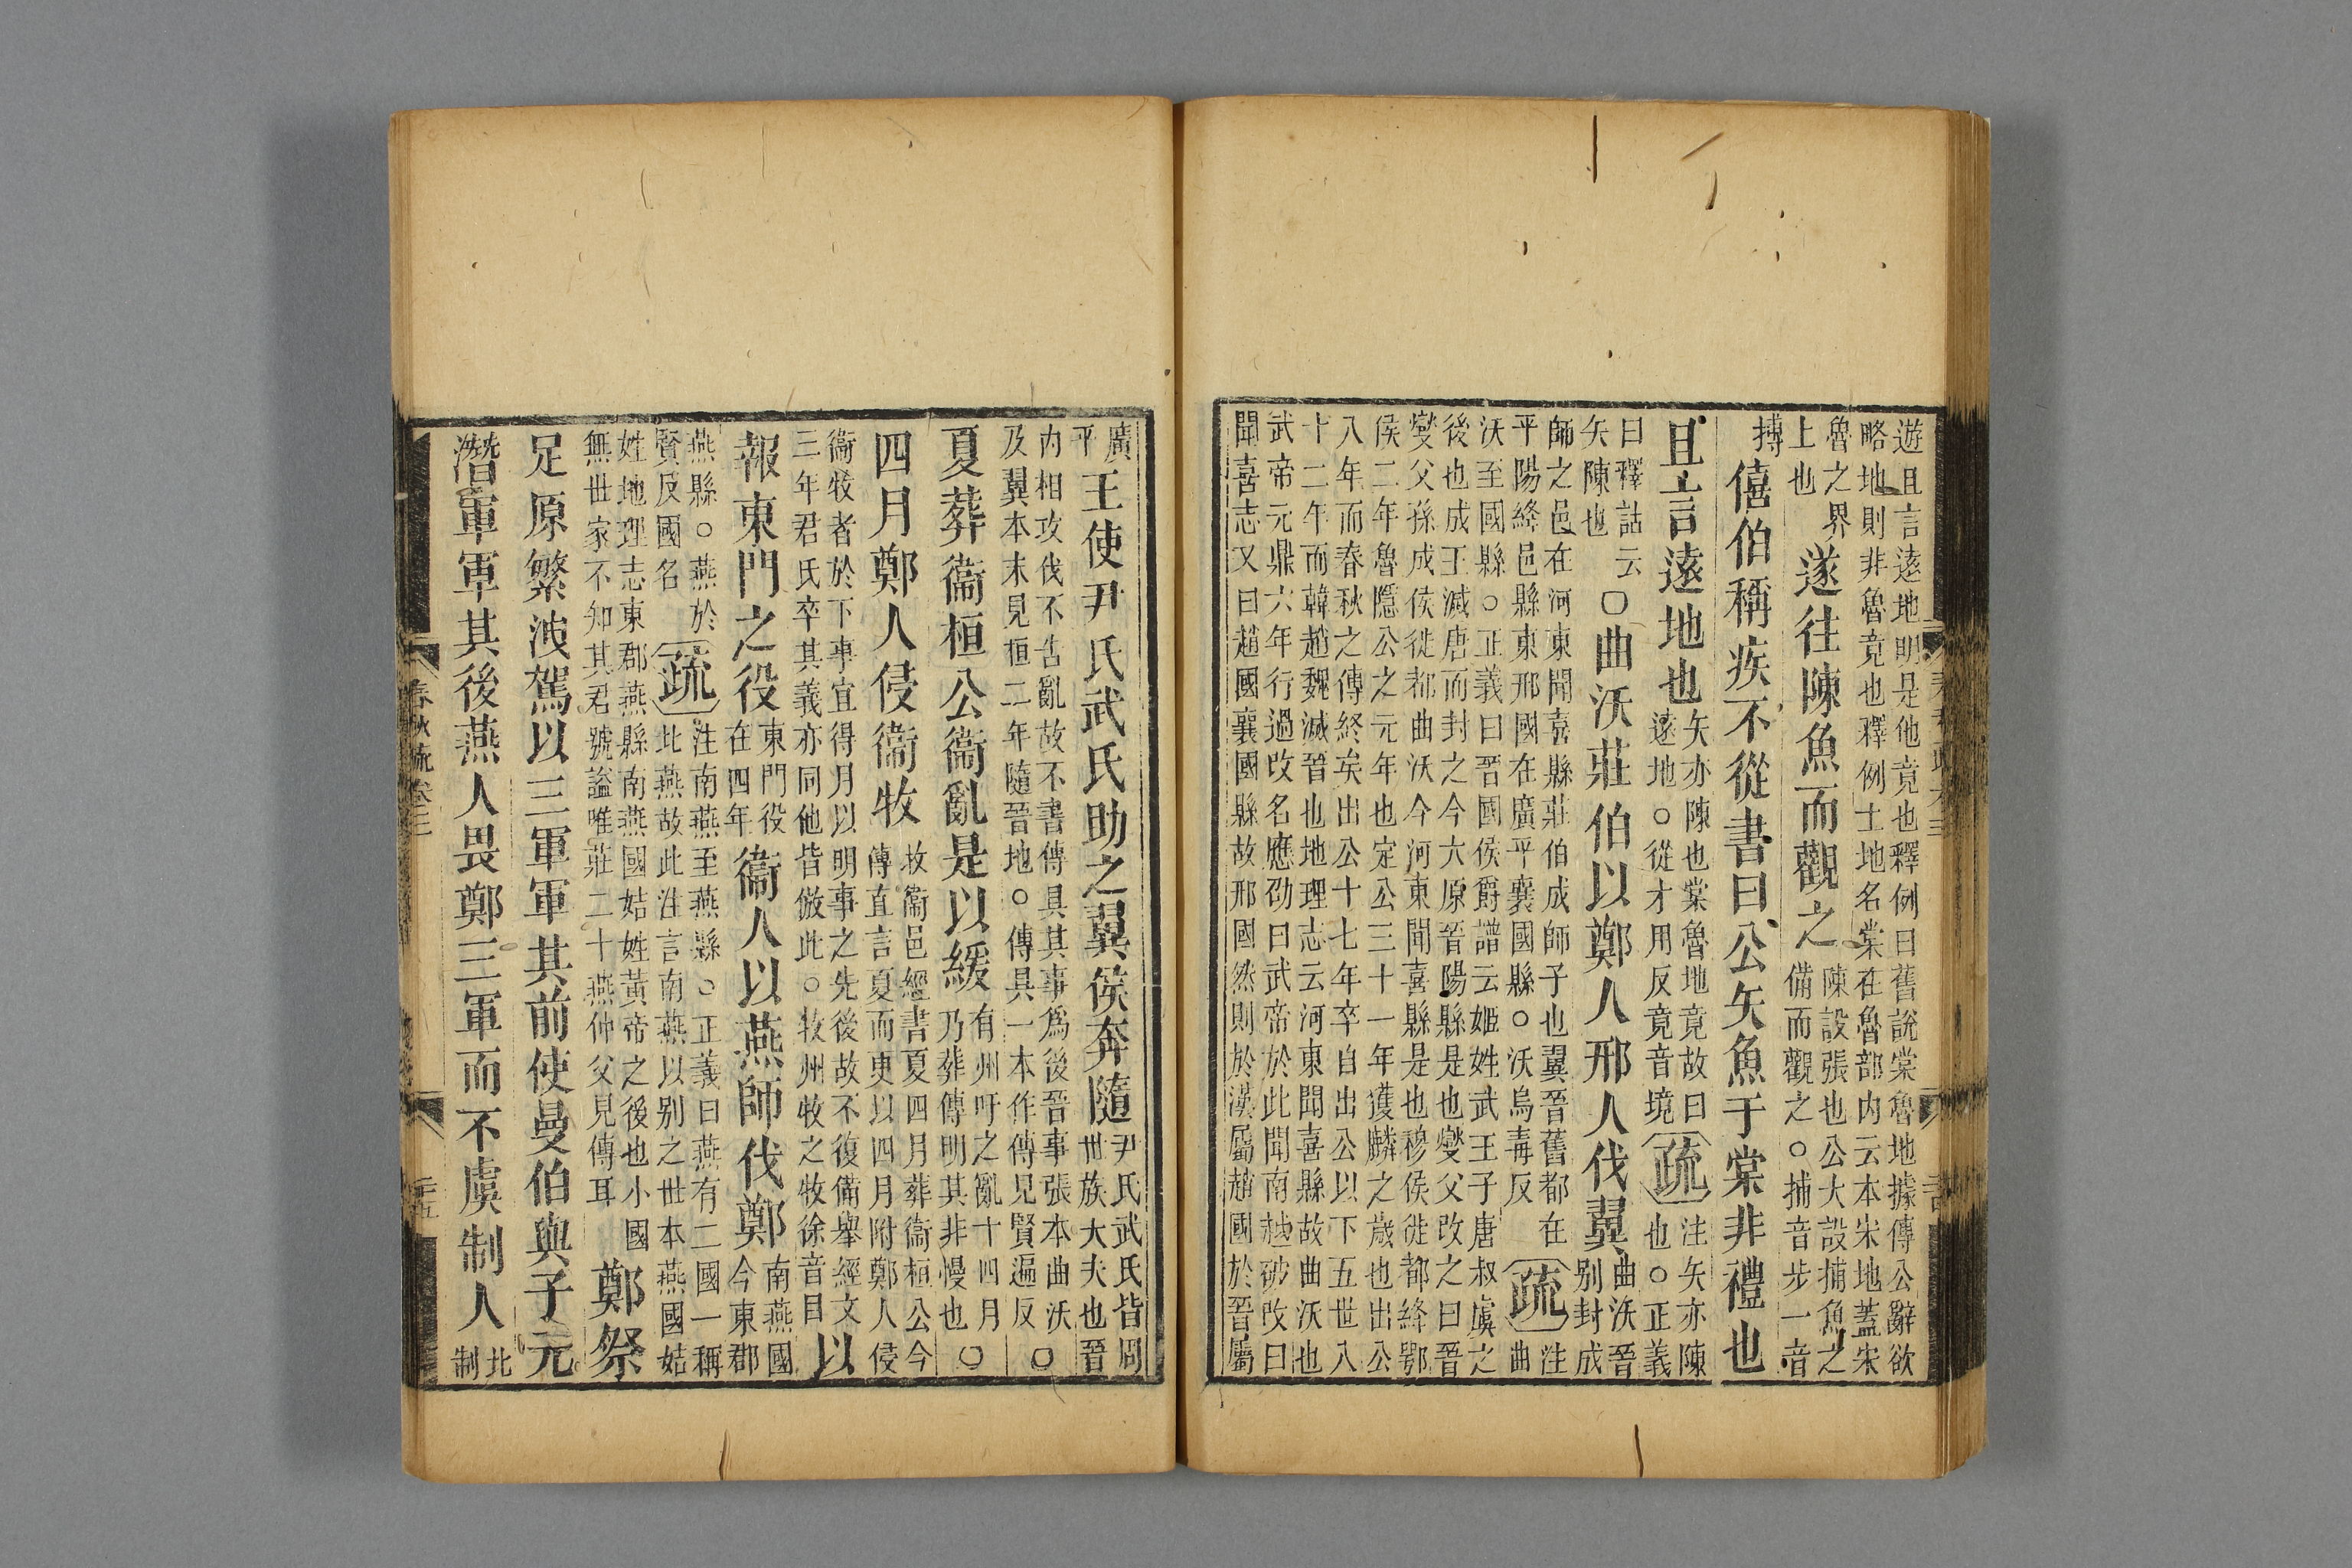 遊且言遠地明是他竟也釋例曰舊說棠魯地據傳公辭欲
略地則非魯竟也釋例土地名棠在魯部內云本宋地蓋宋
魯之界
上也
遂往陳魚而觀之
陳設張也公大設捕魚之
備而觀之○捕音步一音
搏
僖伯稱疾不從書曰公矢魚于棠非禮也
且言遠地也
矢亦陳也棠魯地竟故曰
遠地○從才用反竟音境
疏
注矢亦陳
也○正義
曰釋詁云
矢陳也
○曲沃莊伯以鄭人邢人伐翼
曲沃晉
别封成
師之邑在河東聞喜縣莊伯成師子也翼晉舊都在
平陽絳邑縣東邢國在廣平襄國縣○沃烏毒反
疏
注
曲
沃至國縣○正義曰晉國侯爵譜云姬姓武王子唐叔虞之
後也成王滅唐而封之今大原晉陽縣是也燮父改之曰晉
燮父孫成侯徙都曲沃今河東聞喜縣是也穆侯徙都絳鄂
侯二年魯隱公之元年也定公三十一年獲麟之歲也出公
八年而春秋之傳終矣出公十七年卒自出公以下五世八
十二年而韓趙魏滅晉也地理志云河東聞喜縣故曲沃也
武帝元鼎六年行過改名應劭曰武帝於此聞南越破改曰
聞喜志又曰趙國襄國縣故邢國然則於漢屬趙國於晉屬
廣
平
王使尹氏武氏助之翼侯奔隨
尹氏武氏皆周
世族大夫也晉
內相攻伐不告亂故不書傳具其事爲後晉事張本曲沃
及翼本末見桓二年隨晉地○傳具一本作傳見賢遍反
○
夏葬衞桓公衞亂是以緩
有州吁之亂十四月
乃葬傳明其非慢也
○
四月鄭人侵衞牧
牧衞邑經書夏四月葬衞桓公今
傳直言夏而更以四月附鄭人侵
衞牧者於下事宜得月以明事之先後故不復備舉經文
三年君氏卒其義亦同他皆倣此○牧州牧之牧徐音目
以
報東門之役
東門役
在四年
衞人以燕師伐鄭
南燕國
今東郡
燕縣○燕於
賢反國名
疏
注南燕至燕縣○正義曰燕有二國一稱
北燕故此注言南燕以别之世本燕國姞
姓地理志東郡燕縣南燕國姞姓黃帝之後也小國
無世家不知其君號謚唯莊二十燕仲父見傳耳
鄭祭
足原繁洩駕以三軍軍其前使曼伯與子元
潛軍軍其後燕人畏鄭三軍而不虞制人
北
制
春秋疏卷三
二十五